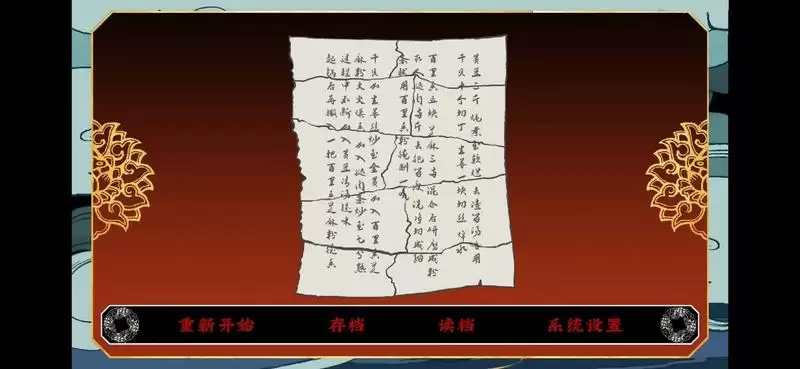 黄豆三斤 炖煮至软烂 去渣留汤备用
干贝半个切丁 生姜一块切丝焯水
百里香五块 芝麻三两 混合后研磨成粉
腿肉两斤 去肥留瘦 洗净切成细
条状用百里香粉腌制一晚
干贝和生姜丝炒至金黄加入百里香芝
麻粉大火煸香 加入腿肉条炒至七分熟
过程中不断加入黄豆清汤提味
起锅后再撒入一把百里香芝麻粉提香
重新开始 存档 读档 系统设置